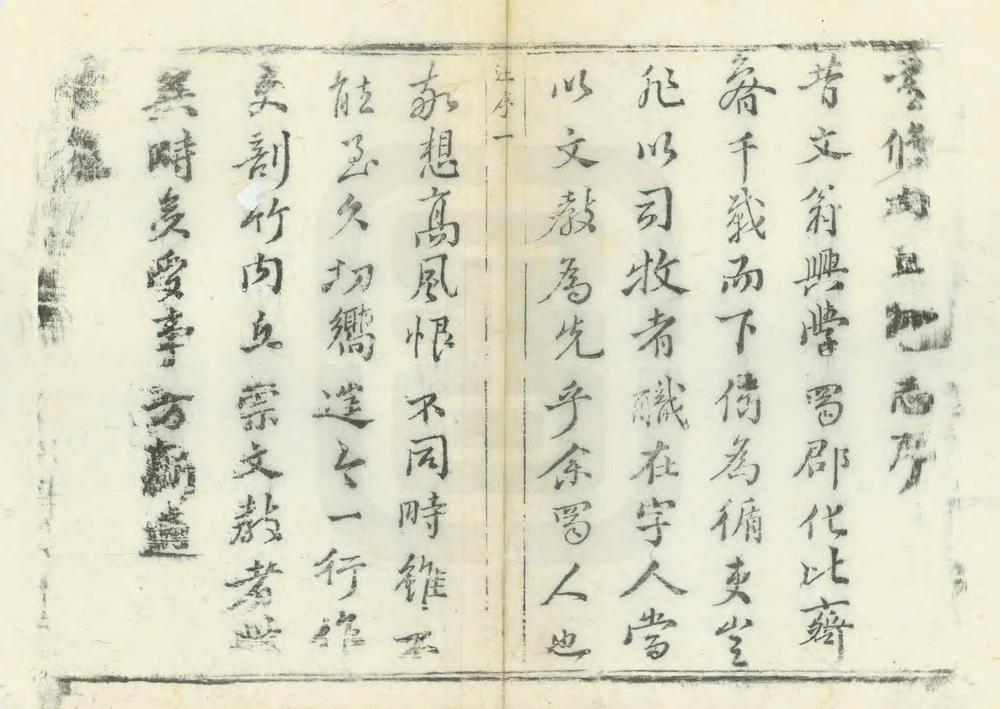 重修內丘縣志序
昔文翁興學蜀郡化比齊
魯千載而下傳為循吏豈
非以司牧者職在字人當
以文教為先乎余蜀人也
序一
想高風恨不同時雖不
能至久切嚮今一行作
吏剖竹內丘崇文教者此
其時矣受事方新